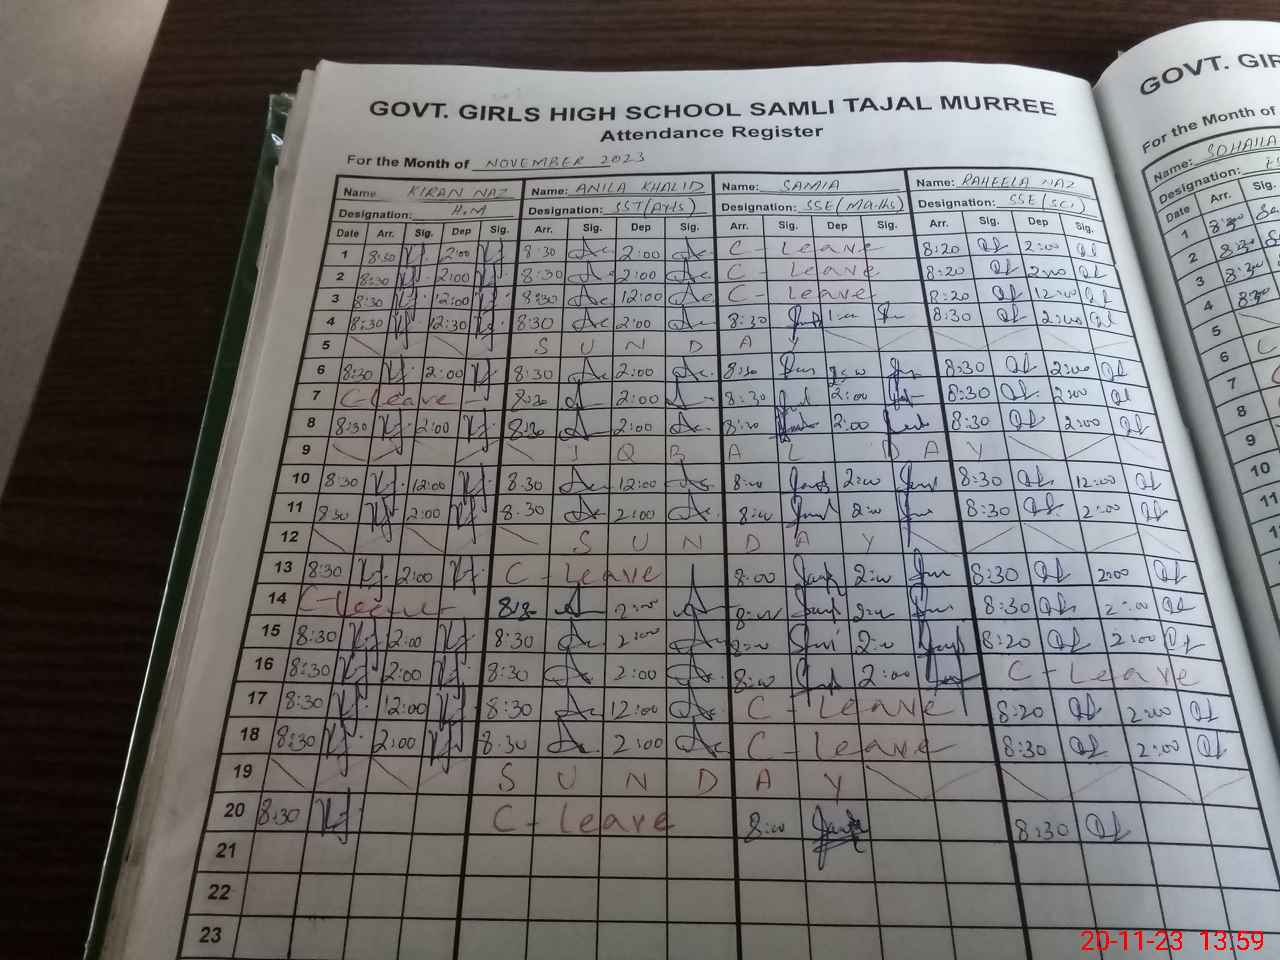 GOVT. GIRLS HIGH SCHOOL SAMLI TAJAL MURREE
Attendance Register
For the Month of NOVEMBER 2023
Name KIRAN NAZ Name: ANILA KHALID Name: SAMIA Name: RAHEELA NAZ
Designation: H.M Designation: SST(Arts) Designation: SSE(Maths) Designation: SSE(SCI)
Date Arr. Sig. Dep Sig. Arr. Sig. Dep Sig. Arr. Sig. Dep Sig. Arr. Sig. Dep Sig.
1 8:30 2:00 8:30 2:00 C - Leave 8:20 2:00
2 8:30 2:00 8:30 2:00 C - Leave 8:20 2:00
3 8:30 12:00 8:30 12:00 C - Leave 8:20 12:00
4 8:30 12:30 8:30 2:00 8:30 8:30 2:00
5 SUNDAY
6 8:30 2:00 8:30 2:00 8:30 2:00 8:30 2:00
7 C-Leave 8:30 2:00 8:30 2:00 8:30 2:00
8 8:30 2:00 8:30 2:00 8:30 2:00 8:30 2:00
9 IQBAL DAY
10 8:30 12:00 8:30 12:00 8:00 2:00 8:30 12:00
11 8:30 2:00 8:30 2:00 8:00 2:00 8:30 2:00
12 SUNDAY
13 8:30 2:00 C - Leave 8:00 2:00 8:30 2:00
14 C-Leave 8:30 2:00 8:00 2:00 8:30 2:00
15 8:30 2:00 8:30 2:00 8:00 2:00 8:20 2:00
16 8:30 2:00 8:30 2:00 8:00 2:00 C - Leave
17 8:30 12:00 8:30 12:00 C - Leave 8:20 2:00
18 8:30 2:00 8:30 2:00 C - Leave 8:30 2:00
19 SUNDAY
20 8:30 C - Leave 8:00 8:30
21
22
23
GOVT. GIR
For the Month of
Name: SOHAILA
Designation:
Date Arr. Sig.
1 8:30
2 8:30
3 8:30
4 8:30
5
6
7
8
9
10
11
20-11-23 13:59